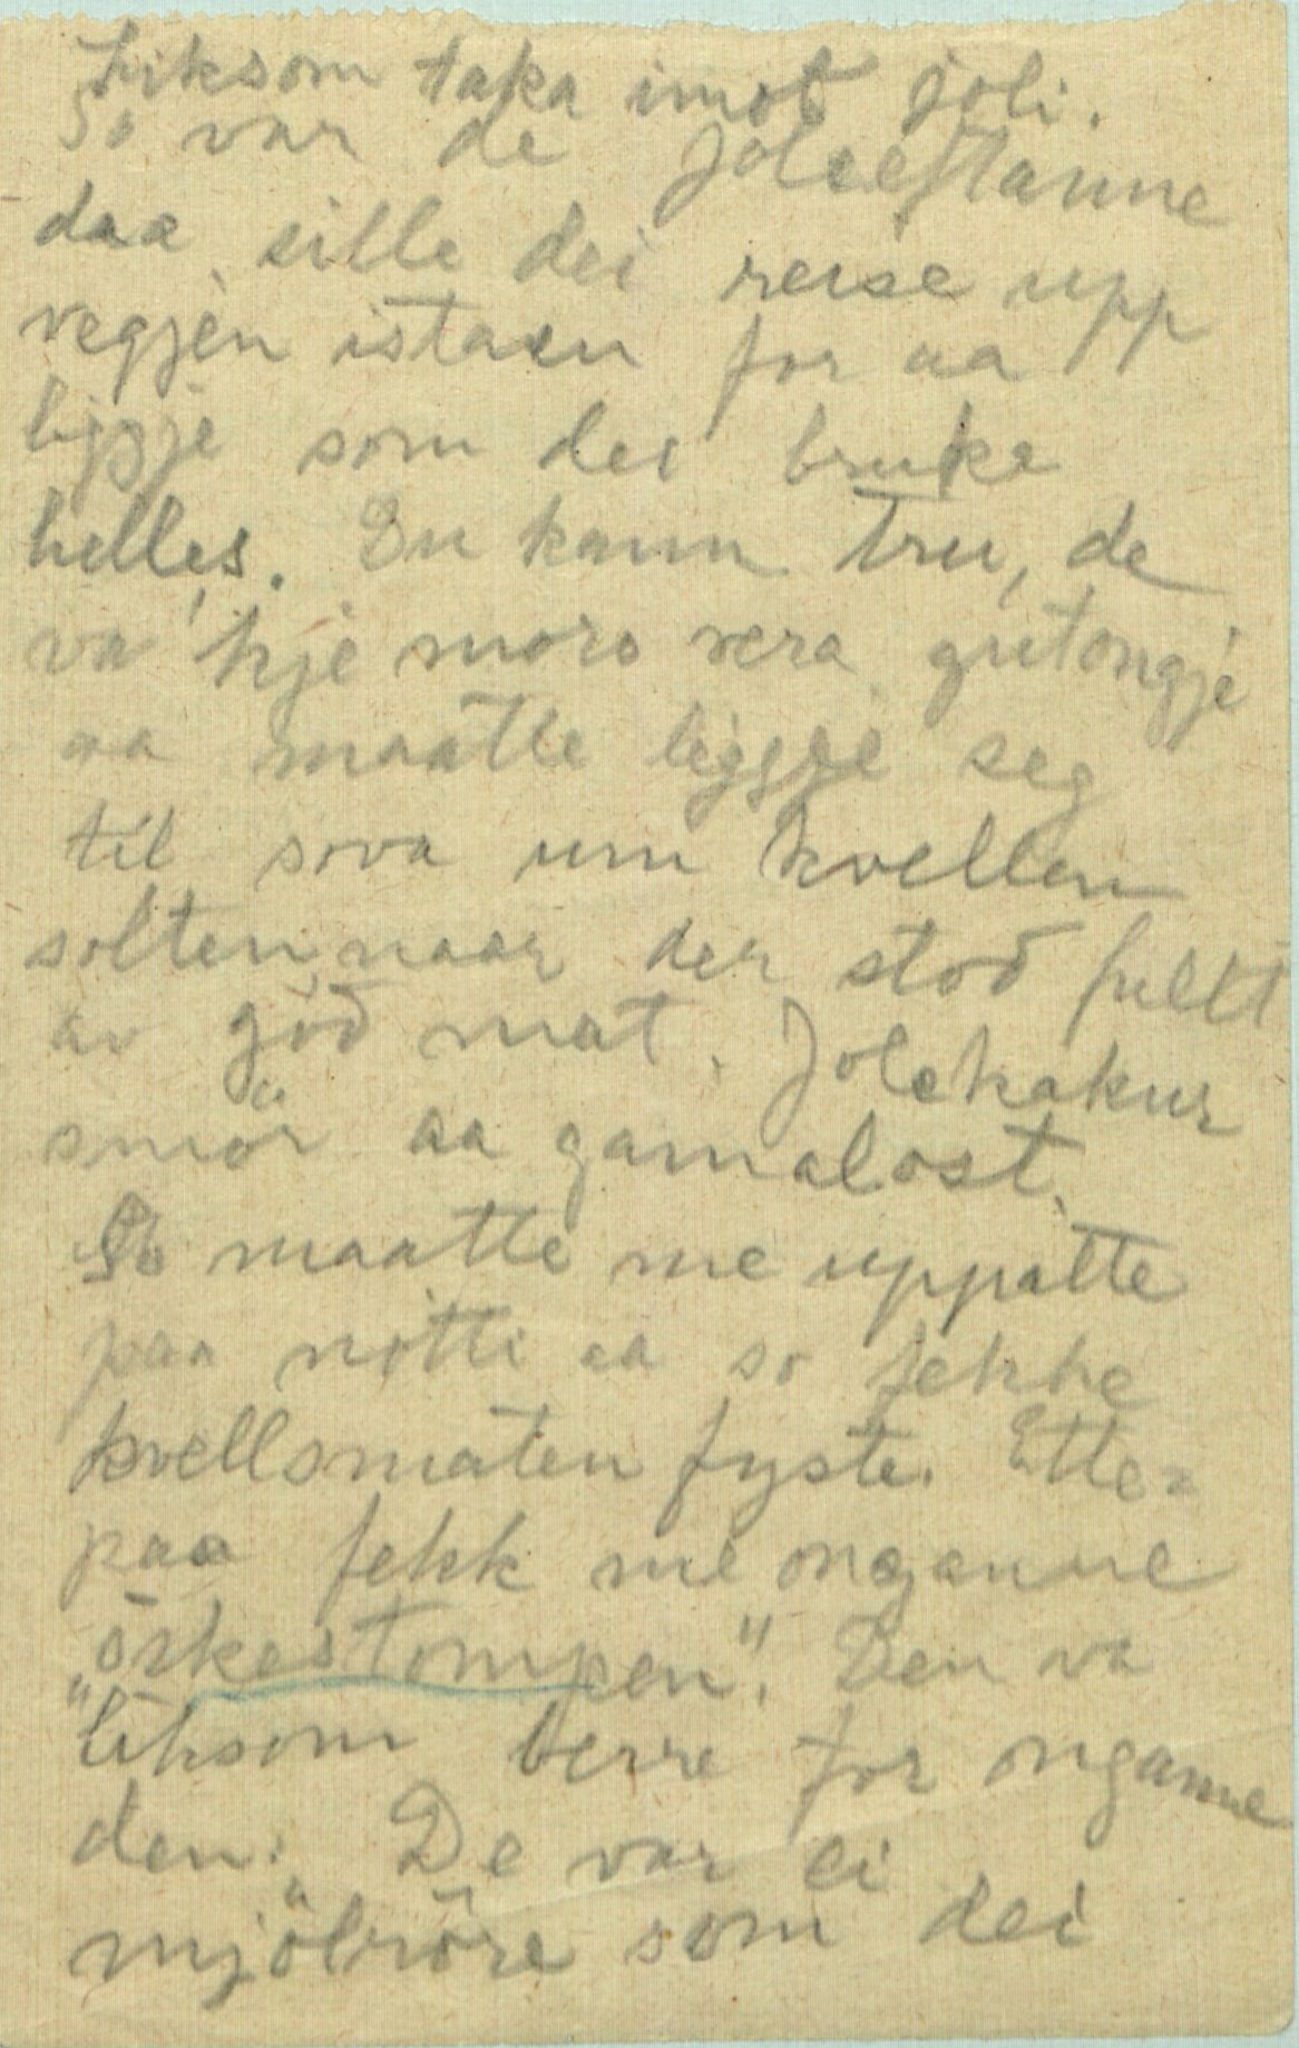 Liksom taka imot joli.
So var de joleeftanne
daa sille dei reise upp
vegjèn istaen for aa
liggje som dei bruke
helles. Du kann tru, de
va 'kje moro vera gutongje
aa maatte liggje seg
til sova um kvellen
solten, naar der stod fullt
av god mat. Jolekakur
smör aa gamalost.
So maatte me uppatte
paa nötti aa so fekke
kvellsmaten fyste. Etter
paa fekk me onganne
"öskestompen". Den va
liksom berre for onganne
den. De var ei
mjölröre som dei